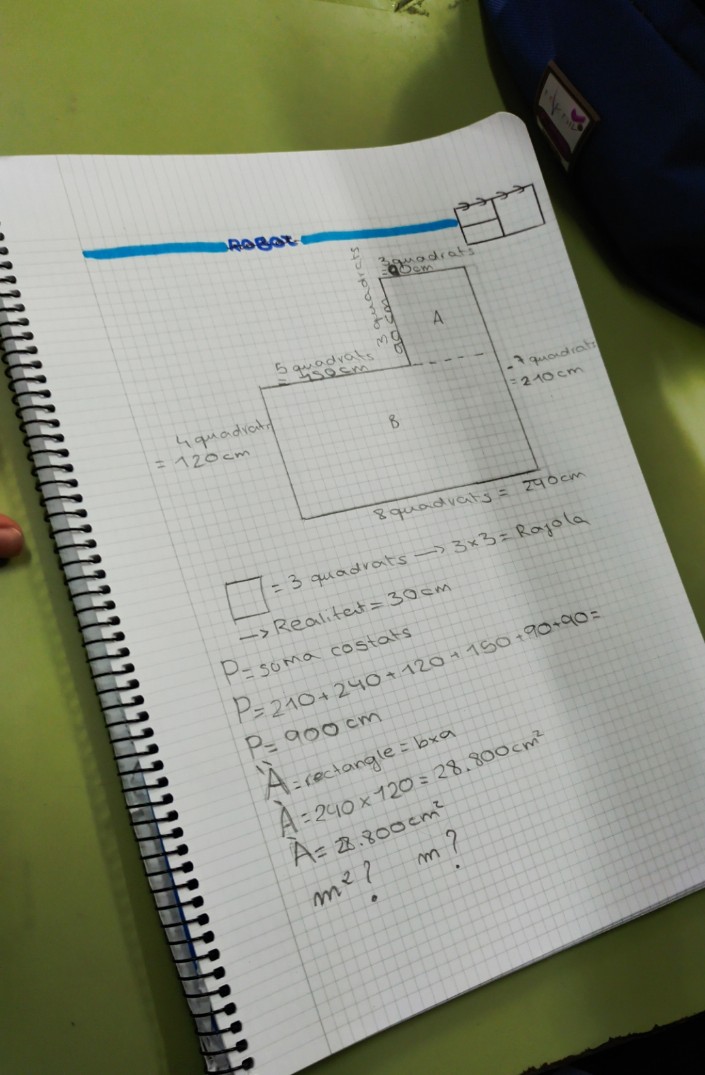 ROBOT
3 quadrats
= 90cm
3 quadrats
A
5 quadrats
= 150cm
7 quadrats
= 210cm
4 quadrats
= 120cm
B
8 quadrats = 240cm
= 3 quadrats → 3x3 = Rajola
→ Realitat = 30cm
P = suma costats
P = 210 + 240 + 120 + 150 + 90 + 90 =
P = 900 cm
À = rectangle = bxa
À = 240 x 120 = 28.800 cm²
À = 28.800 cm²
m² ? m ?